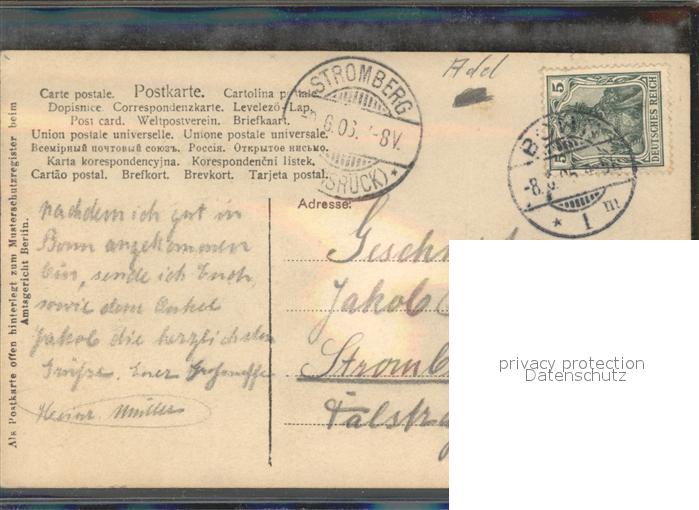 Adel
5
5
DEUTSCHES REICH
STROMBERG
6.06. 7-8V.
BONN
-8.6.
* 1 m
Carte postale. Postkarte. Cartolina postale.
Dopisnice. Correspondenzkarte. Levelező-Lap.
Post card. Weltpostverein. Briefkaart.
Union postale universelle. Unione postale universale.
Всемірный почтовый союзъ. Россія. Открытое письмо.
Karta korespondencyjna. Korespondenční listek.
Cartão postal. Brefkort. Brevkort. Tarjeta postal.
Als Postkarte offen hinterlegt zum Musterschutzregister beim
Amtsgericht Berlin.
Nachdem ich gut in
Bonn angekommen
bin, sende ich Euch
sowie dem Onkel
Jakob die herzlichsten
Grüße. Euer Großneffe
Heinr. Müller
Adresse:
Jakob
Stromb
privacy protection
Datenschutz